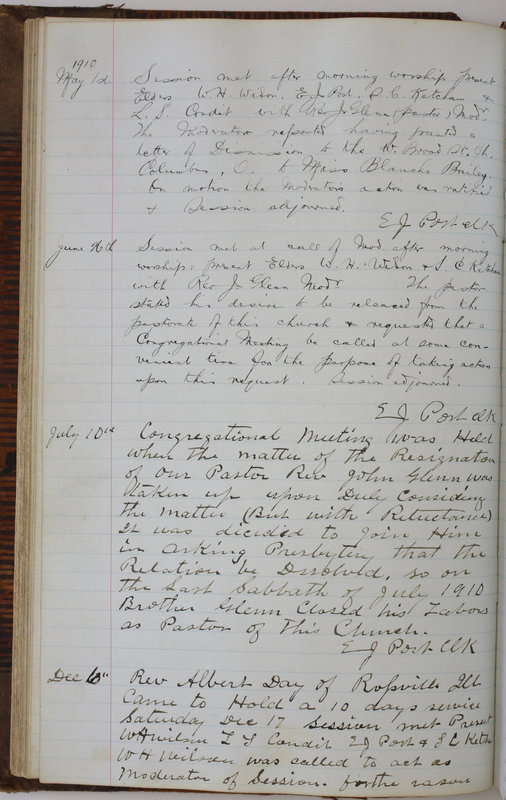 1910
May 1st Session met after morning worship. Present
Elders W. H. Wilson, E J Post, S. C. Ketcham &
L. S. Condit with Rev Jno Glenn, pastor, Mod.
The Moderator reported having granted a
letter of Dismission to the W. Broad St. Ch.
Columbus, O. to Miss Blanche Bailey.
On motion the Moderator's action was ratified
& Session adjourned.
E J Post Clk
June 26th Session met at call of Mod. after morning
worship: present Elders W. H. Wilson & S. C. Ketcham
with Rev Jno Glenn Modr The pastor
stated his desire to be released from the
pastorate of this church & requested that a
Congregational Meeting be called at some con-
venient time for the purpose of taking action
upon this request. Session adjourned.
E J Post Clk
July 10th Congregational Meeting was Held
when the matter of the Resignaton
of our Pastor Rev John Glenn was
taken up upon Duly Considing
the matter (But with Reluctance)
It was dicided to Join Him
in asking Presbytery that the
Relation be Dssolvld, so on
the Last Sabbath of July 1910
Brother Glenn Closed his Labors
as Pastor of This Church.
E J Post Clk
Dec Rev Albert Day of Rossville Ill
Came to Hold a 10 days service
Saturday Dec 17 Session met Present
W H Wilson L S Condit E J Post & S C Ketch
W H Wilson was called to act as
Moderator of Session. for the rason